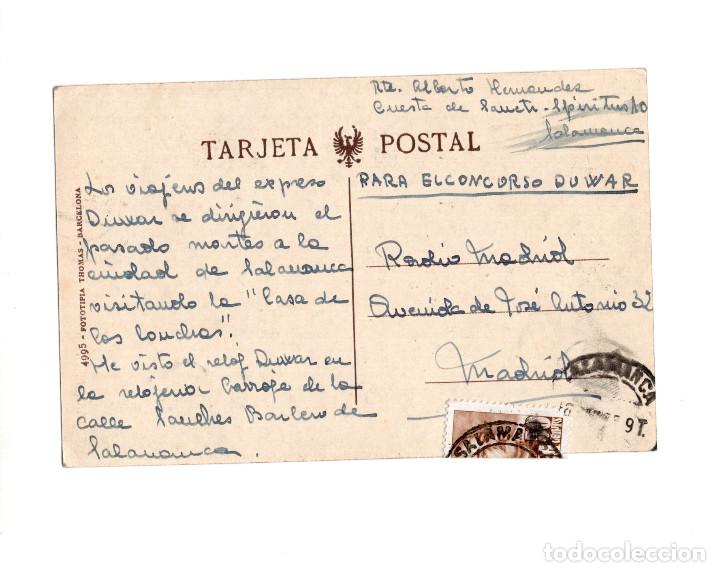 Rte. Alberto Hernandez
Cuesta de Sancti-Spiritus 10
Salamanca
TARJETA POSTAL
4995 - FOTOTIPIA THOMAS - BARCELONA
Los viajeros del expreso
Duwar se dirigieron el
pasado martes a la
ciudad de Salamanca
visitando la "Casa de
las Conchas".
He visto el reloj Duwar en
la relojeria de la
calle Sanches Barbero de
Salamanca.
PARA EL CONCURSO DUWAR
Radio Madrid
Avenida de José Antonio 32
Madrid
SALAMANCA
9T.
SALAMA
todocoleccion